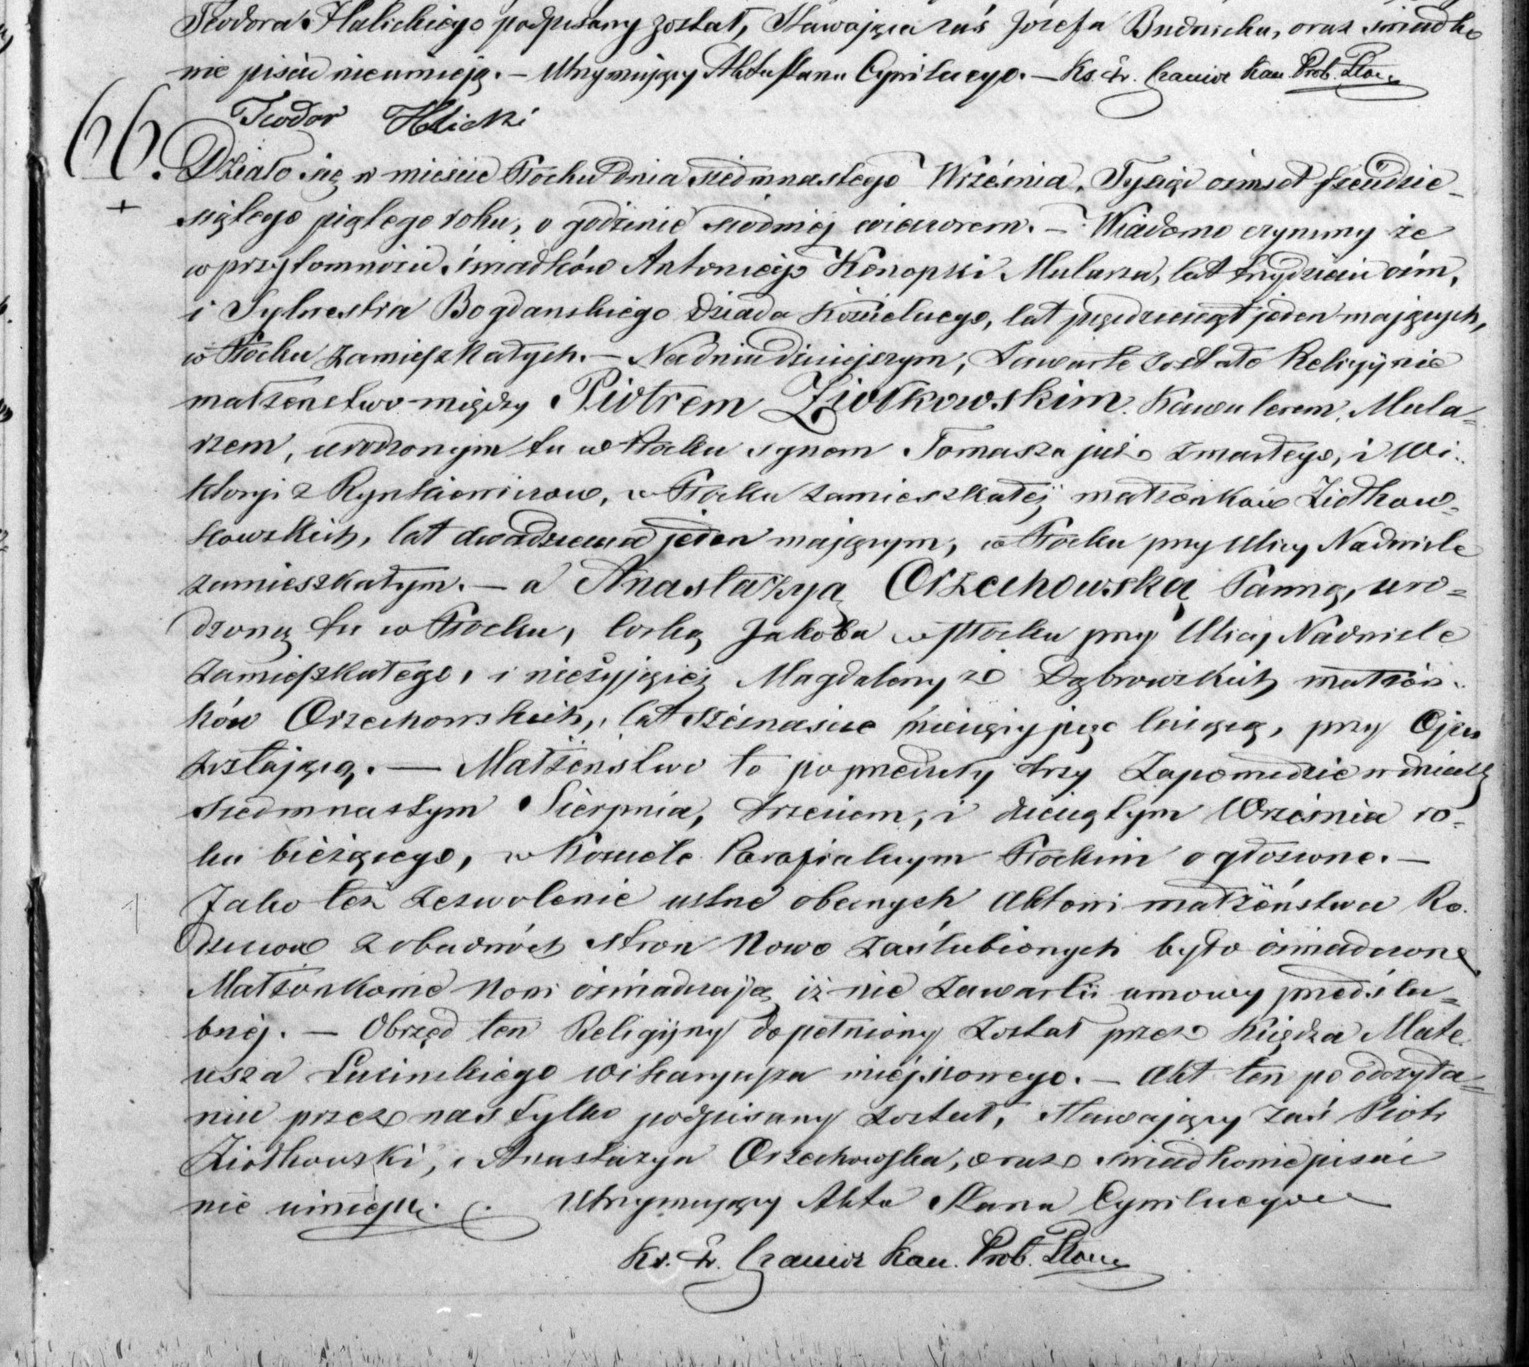 Teodora Halickiego podpisany został, Stawająca zaś Józefa Budnicka, oraz świadko
nie pisać nieumieją. — Utrzymujący Akta Stanu Cywilnego. — Ks. Fr. Kan. Prob. Płoc.
Teodor Halicki
66. Działo się w mieście Płocku dnia siedmnastego Września, Tysiąc ośmset sześdzie-
siątego piątego roku, o godzinie siódmej wieczorem. — Wiadomo czynimy że
w przytomności świadków Antoniego Konopki Mularza, lat trzydzieści ośm,
i Sylwestra Bogdanskiego Dziada Kościelnego, lat pięдziesiąt jeden mających,
w Płocku zamieszkałych. — Na dniu dzisiejszym, Zawarte zostało Religijnie
małżeństwo między Piotrem Ziołkowskim Kawalerem, Mula-
rzem, urodzonym tu w Płocku synem Tomasza już zmarłego, i Wi-
ktoryi z Rynkiewiczow, w Płocku zamieszkałej małżonków Ziołkow-
kowskich, lat dwadzieścia jeden mającym, w Płocku przy Ulicy Nadwiśle
zamieszkałym. — a Anastazyą Orzechowską Panną, uro-
dzoną tu w Płocku, Corką Jakoba w Płocku przy Ulicy Nadwiśle
zamieszkałego, i nieżyjącej Magdaleny ze Dąbrowskich małżon-
ków Orzechowskich, lat szesnaście liczącą, przy Ojcu
zostającą. — Małżeństwo to poprzedziły trzy Zapowiedzie w dniach
siedmnastym Sierpnia, trzeciem, i dziesiątym Września ro-
ku bieżącego, w Kosciele Parafialnym Płockim ogłoszone. —
Jako też zezwolenie ustne obecnych Aktowi małżeństwa Ro-
dziców z obudwóch stron Nowo Zaślubionych było oświadczone
Małżonkowie Nowi oświadczają iż nie zawarli umowy przedślu-
bnej. — Obrzęd ten Religijny dopełniony został przez Księdza Mate-
usza wikaryusza miejscowego. — Akt ten po odczyta-
niu przez nas tylko podpisany został, Stawający zaś Piotr
Ziołkowski, i Anastazya Orzechowska, oraz świadkowie pisać
nie umieją. Utrzymujący Akta Stanu Cywilnego
Ks. Fr. Kan. Prob. Płoc.